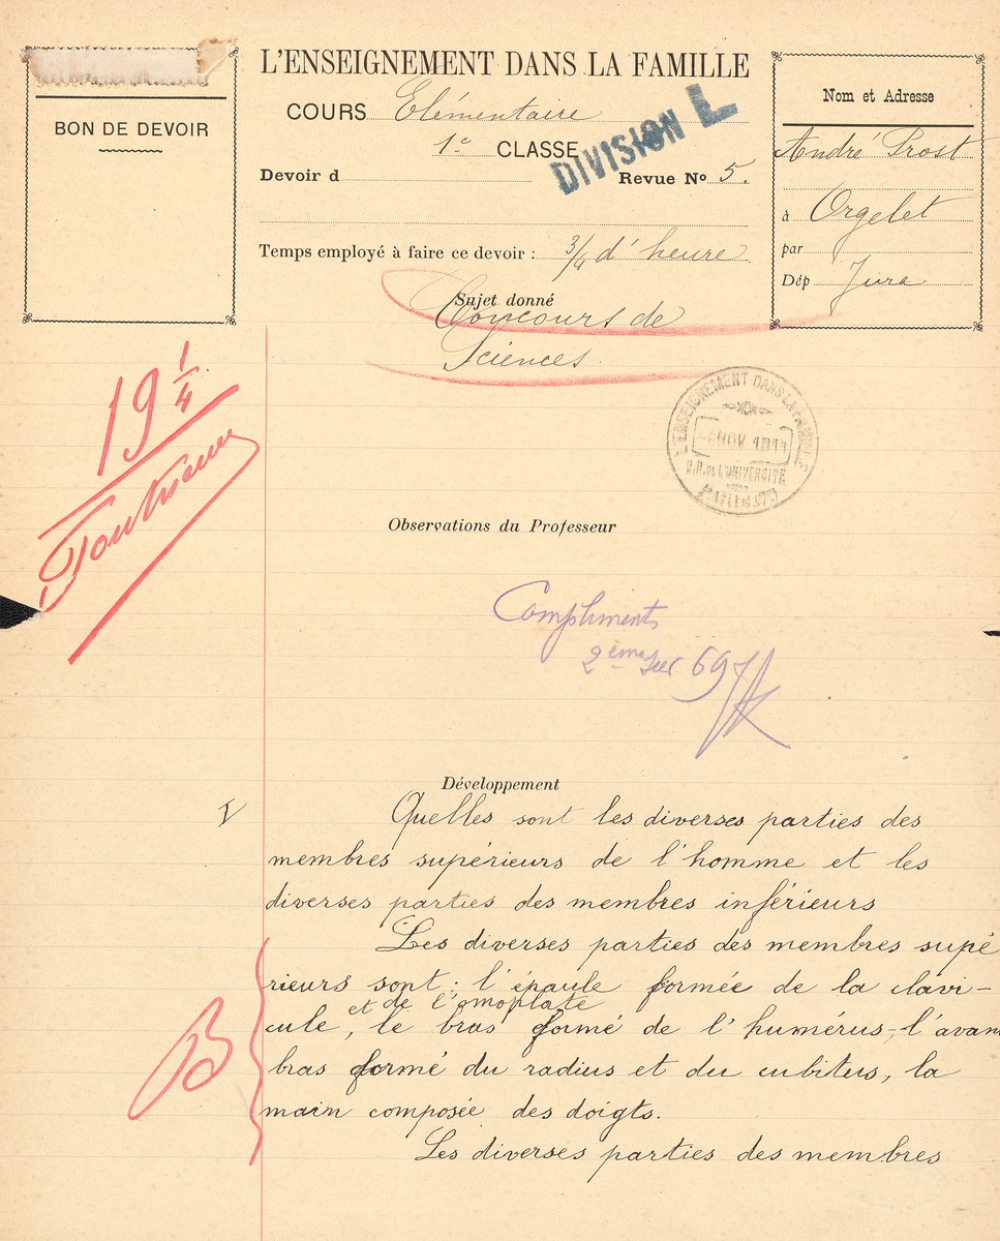 L'ENSEIGNEMENT DANS LA FAMILLE
BON DE DEVOIR
COURS Elémentaire
1e CLASSE
DIVISION L
Devoir d
Revue No 5.
Temps employé à faire ce devoir : 3/4 d'heure
Nom et Adresse
André Prost
à Orgelet
par
Dép Jura
Sujet donné
Concours de
Sciences.
19 1/4
L'ENSEIGNEMENT DANS LA FAMILLE
NOV 1911
B.P. de L'UNIVERSITÉ
Observations du Professeur
Compliments
2ème sur 697
Développement
I
Quelles sont les diverses parties des
membres supérieurs de l'homme et les
diverses parties des membres inférieurs
Les diverses parties des membres supé
rieurs sont : l'épaule formée de la clavi-
et de l'omoplate
cule, le bras formé de l'humérus, l'avant
bras formé du radius et du cubitus, la
main composée des doigts.
B
Les diverses parties des membres